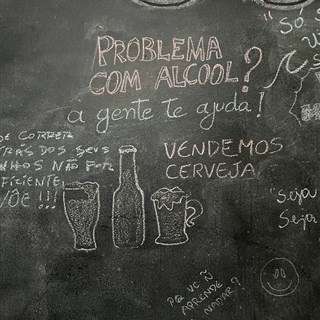 PROBLEMA
COM ALCOOL?
a gente te ajuda!
VENDEMOS
CERVEJA
DE CORRER
TRÁS DOS SEUS
NHOS NÃO FOR
FICIENTE,
VOE!!!
"SÓ
"Seja
Seja
APRENDE
NADAR?